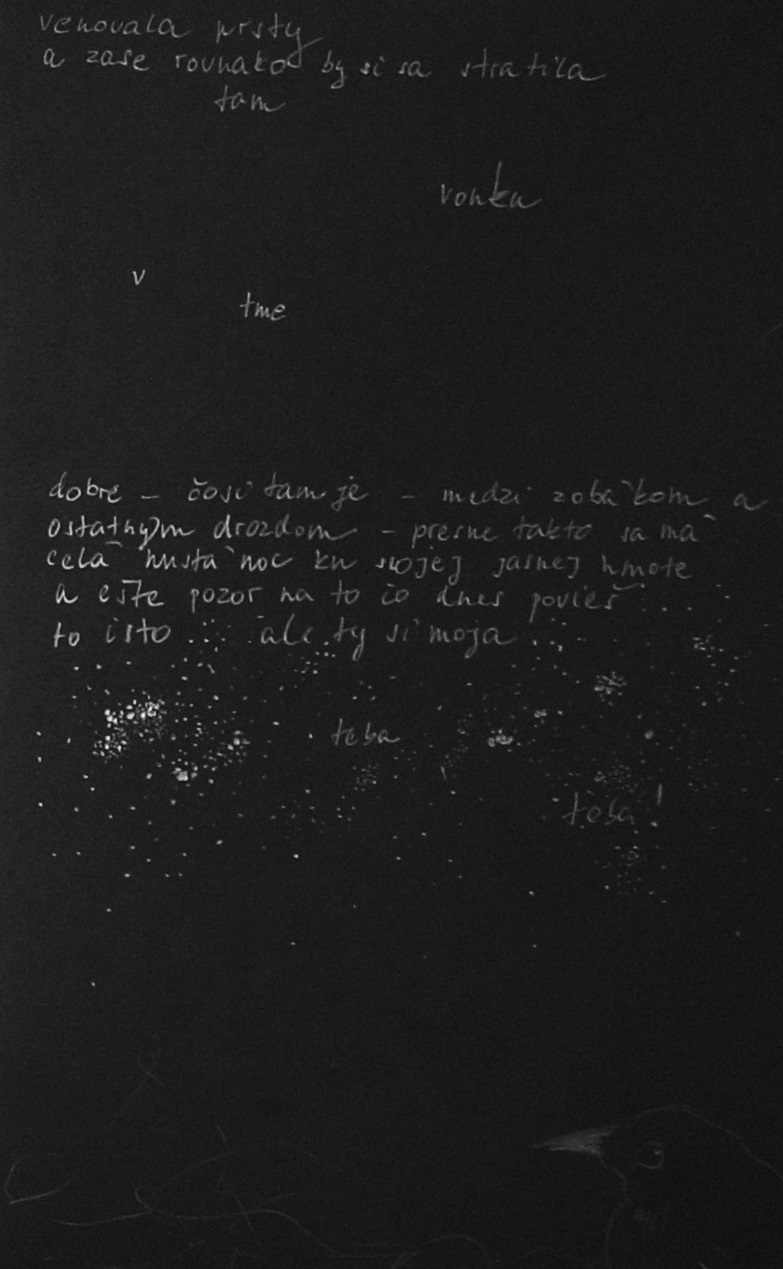 venovala prsty
a zase rovnako by si sa stratila
tam
vonku
v
tme
dobre – čosi tam je – medzi zobákom a
ostatným drozdom – presne takto sa má
celá hustá noc ku svojej jasnej hmote
a ešte pozor na to čo dnes povieš...
to isto... ale ty si moja...
teba
teba!